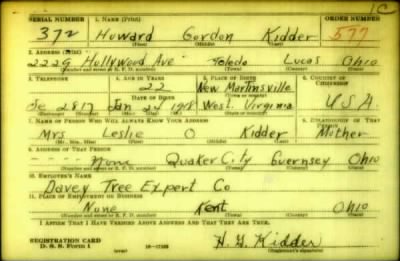 1C
SERIAL NUMBER 1. NAME (Print) ORDER NUMBER
372 Howard Gordon Kidder 577
(First) (Middle) (Last)
2. ADDRESS (Print)
2229 Hollywood Ave Toledo Lucas Ohio
(Number and street or R. F. D. number) (Town) (County) (State)
3. TELEPHONE 4. AGE IN YEARS 5. PLACE OF BIRTH 6. COUNTRY OF CITIZENSHIP
22 New Martinsville
(Town or county)
DATE OF BIRTH
Je 2817 Jan 24 1918 West. Virginia U S A
(Exchange) (No.) (Mo.) (Day) (Yr.) (State or country)
7. NAME OF PERSON WHO WILL ALWAYS KNOW YOUR ADDRESS 8. RELATIONSHIP OF THAT PERSON
Mrs Leslie O Kidder Mother
(Mr., Mrs., Miss) (First) (Middle) (Last)
9. ADDRESS OF THAT PERSON
---- None Quaker City Guernsey Ohio
(Number and street or R. F. D. number) (Town) (County) (State)
10. EMPLOYER'S NAME
Davey Tree Expert Co
11. PLACE OF EMPLOYMENT OR BUSINESS
None Kent Ohio
(Number and street or R. F. D. number) (Town) (County) (State)
I AFFIRM THAT I HAVE VERIFIED ABOVE ANSWERS AND THAT THEY ARE TRUE.
REGISTRATION CARD
D. S. S. Form 1 (over) H. G. Kidder
(Registrant's signature)